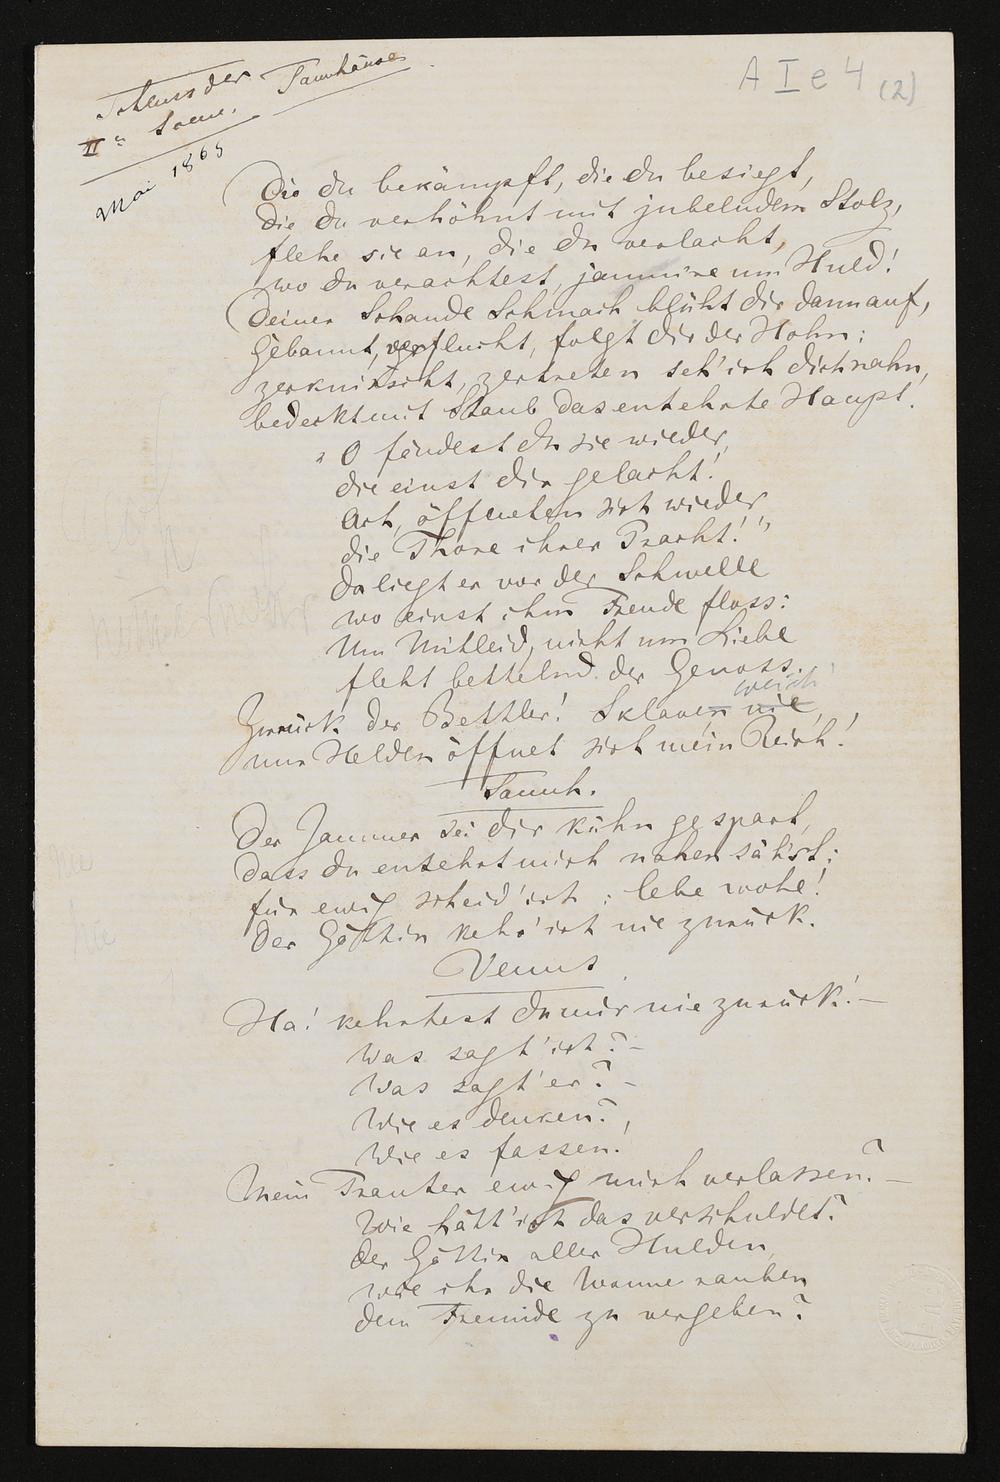 Schluss der Tannhäuser
IIn Scene.
Mai 1865
A I e 4 (2)
Die du bekämpft, die du besiegt,
die du verhöhnt mit jubelndem Stolz,
flehe sie an, die du verlacht,
wo du verachtest, jammre um Huld!
Deiner Schande Schmach blüht dir dann auf,
Gebannt, verflucht, folgt dir der Hohn:
zerknirscht, zertreten seh' ich dich nahn,
bedeckt mit Staub das entehrte Haupt.
„O fändest du sie wieder,
die einst dir gelacht!
Ach, öffneten sich wieder
die Thore ihrer Pracht!"
Da liegt er vor der Schwelle
wo einst ihm Freude floss:
Um Mitleid, nicht um Liebe
fleht bettelnd der Genoss.
weich'
Zurück der Bettler! Sklaven nie,
nur Helden öffnet sich mein Reich!
Tannh.
Der Jammer sei dir kühn gespart,
dass du entehrt mich nahen säh'st;
für ewig scheid' ich: lebe wohl!
Der Göttin kehr' ich nie zurück.
Venus.
Ha! kehrtest du mir nie zurück! –
Was sagt' ich? –
Was sagt' er? –
Wie es denken?,
Wie es fassen.
Mein Trauter ewig mich verlassen? –
Wie hätt' ich das verschuldet?
Der Göttin aller Hulden,
wie ihr die Wonne rauben
dem Freunde zu vergeben?